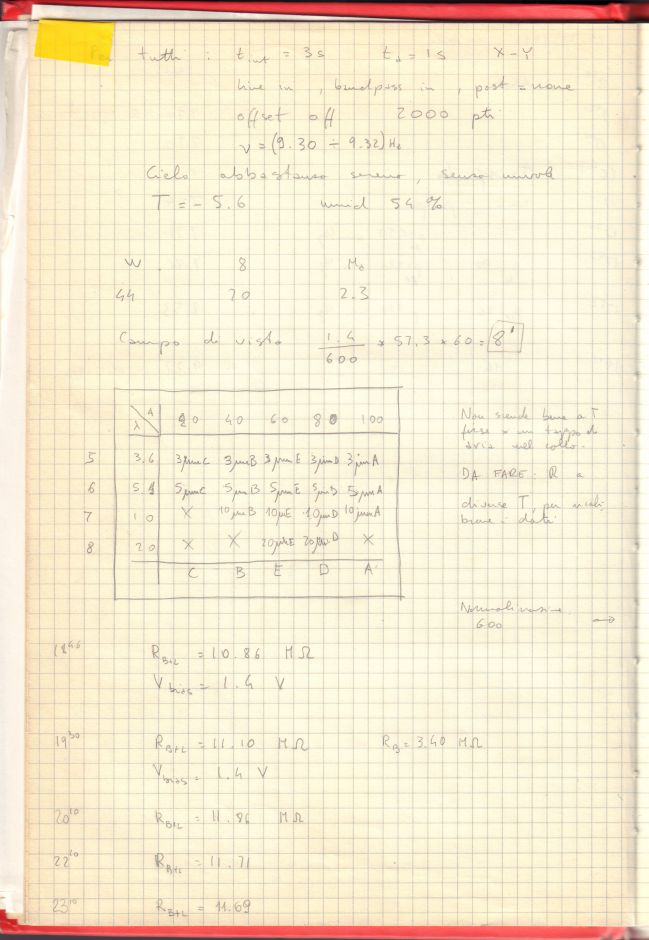 Per tutti : t int = 3 s   t d = 1 s   X-Y
line in , bandpass in , post = none
offset off   2000 pti
ν = (9.30 ÷ 9.32) Hz
Cielo abbastanza sereno, senza nuvole
T = - 5.6   umid 54 %
W   8   Hz
44   20   2.3
Campo di vista   1.4 / 600 × 57.3 × 60 = 8'
λ \ A   20   40   60   80   100
5   3.6   3μmC   3μmB   3μmE   3μmD   3μmA
6   5.1   5μmC   5μmB   5μmE   5μmD   5μmA
7   10   X   10μmB   10μmE   10μmD   10μmA
8   20   X   X   20μmE   20μmD   X
C   B   E   D   A
Non scende bene a T
forse x un tappo di
aria nel collo.
DA FARE : R a
diverse T, per
bene i dati
Normalizzazione
600   →
R B+L = 10.86 MΩ
V bias = 1.4 V
19 30   R B+L = 11.10 MΩ   R B = 3.40 MΩ
V bias = 1.4 V
20 10   R B+L = 11.86 MΩ
22 20   R B+L = 11.71
23 10   R B+L = 11.69